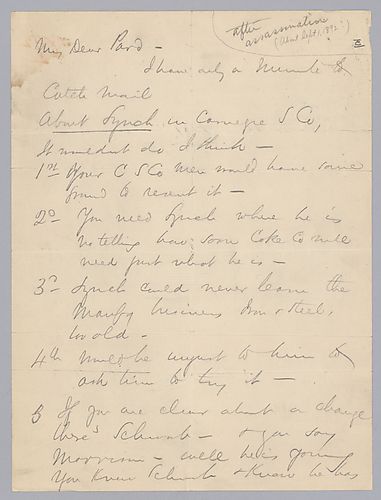 after
assassination
(About Sept 1, 1892)
My Dear Pard —
I have only a Minute to
Catch Mail
About Lynch in Carnegie S Co,
It wouldnt do I think —
1st Your C S Co Men would have some
ground to resent it —
2d You need Lynch where he is
no telling how soon Coke Co will
need just what he is —
3d Lynch could never learn the
Manfg business Iron & Steel,
too old —
4th Would be unjust to him to
ask him to try it —
5 If you are clear about a change
there's Schwab — & you say
Morrison — well he is young
You know Schwab & know he has